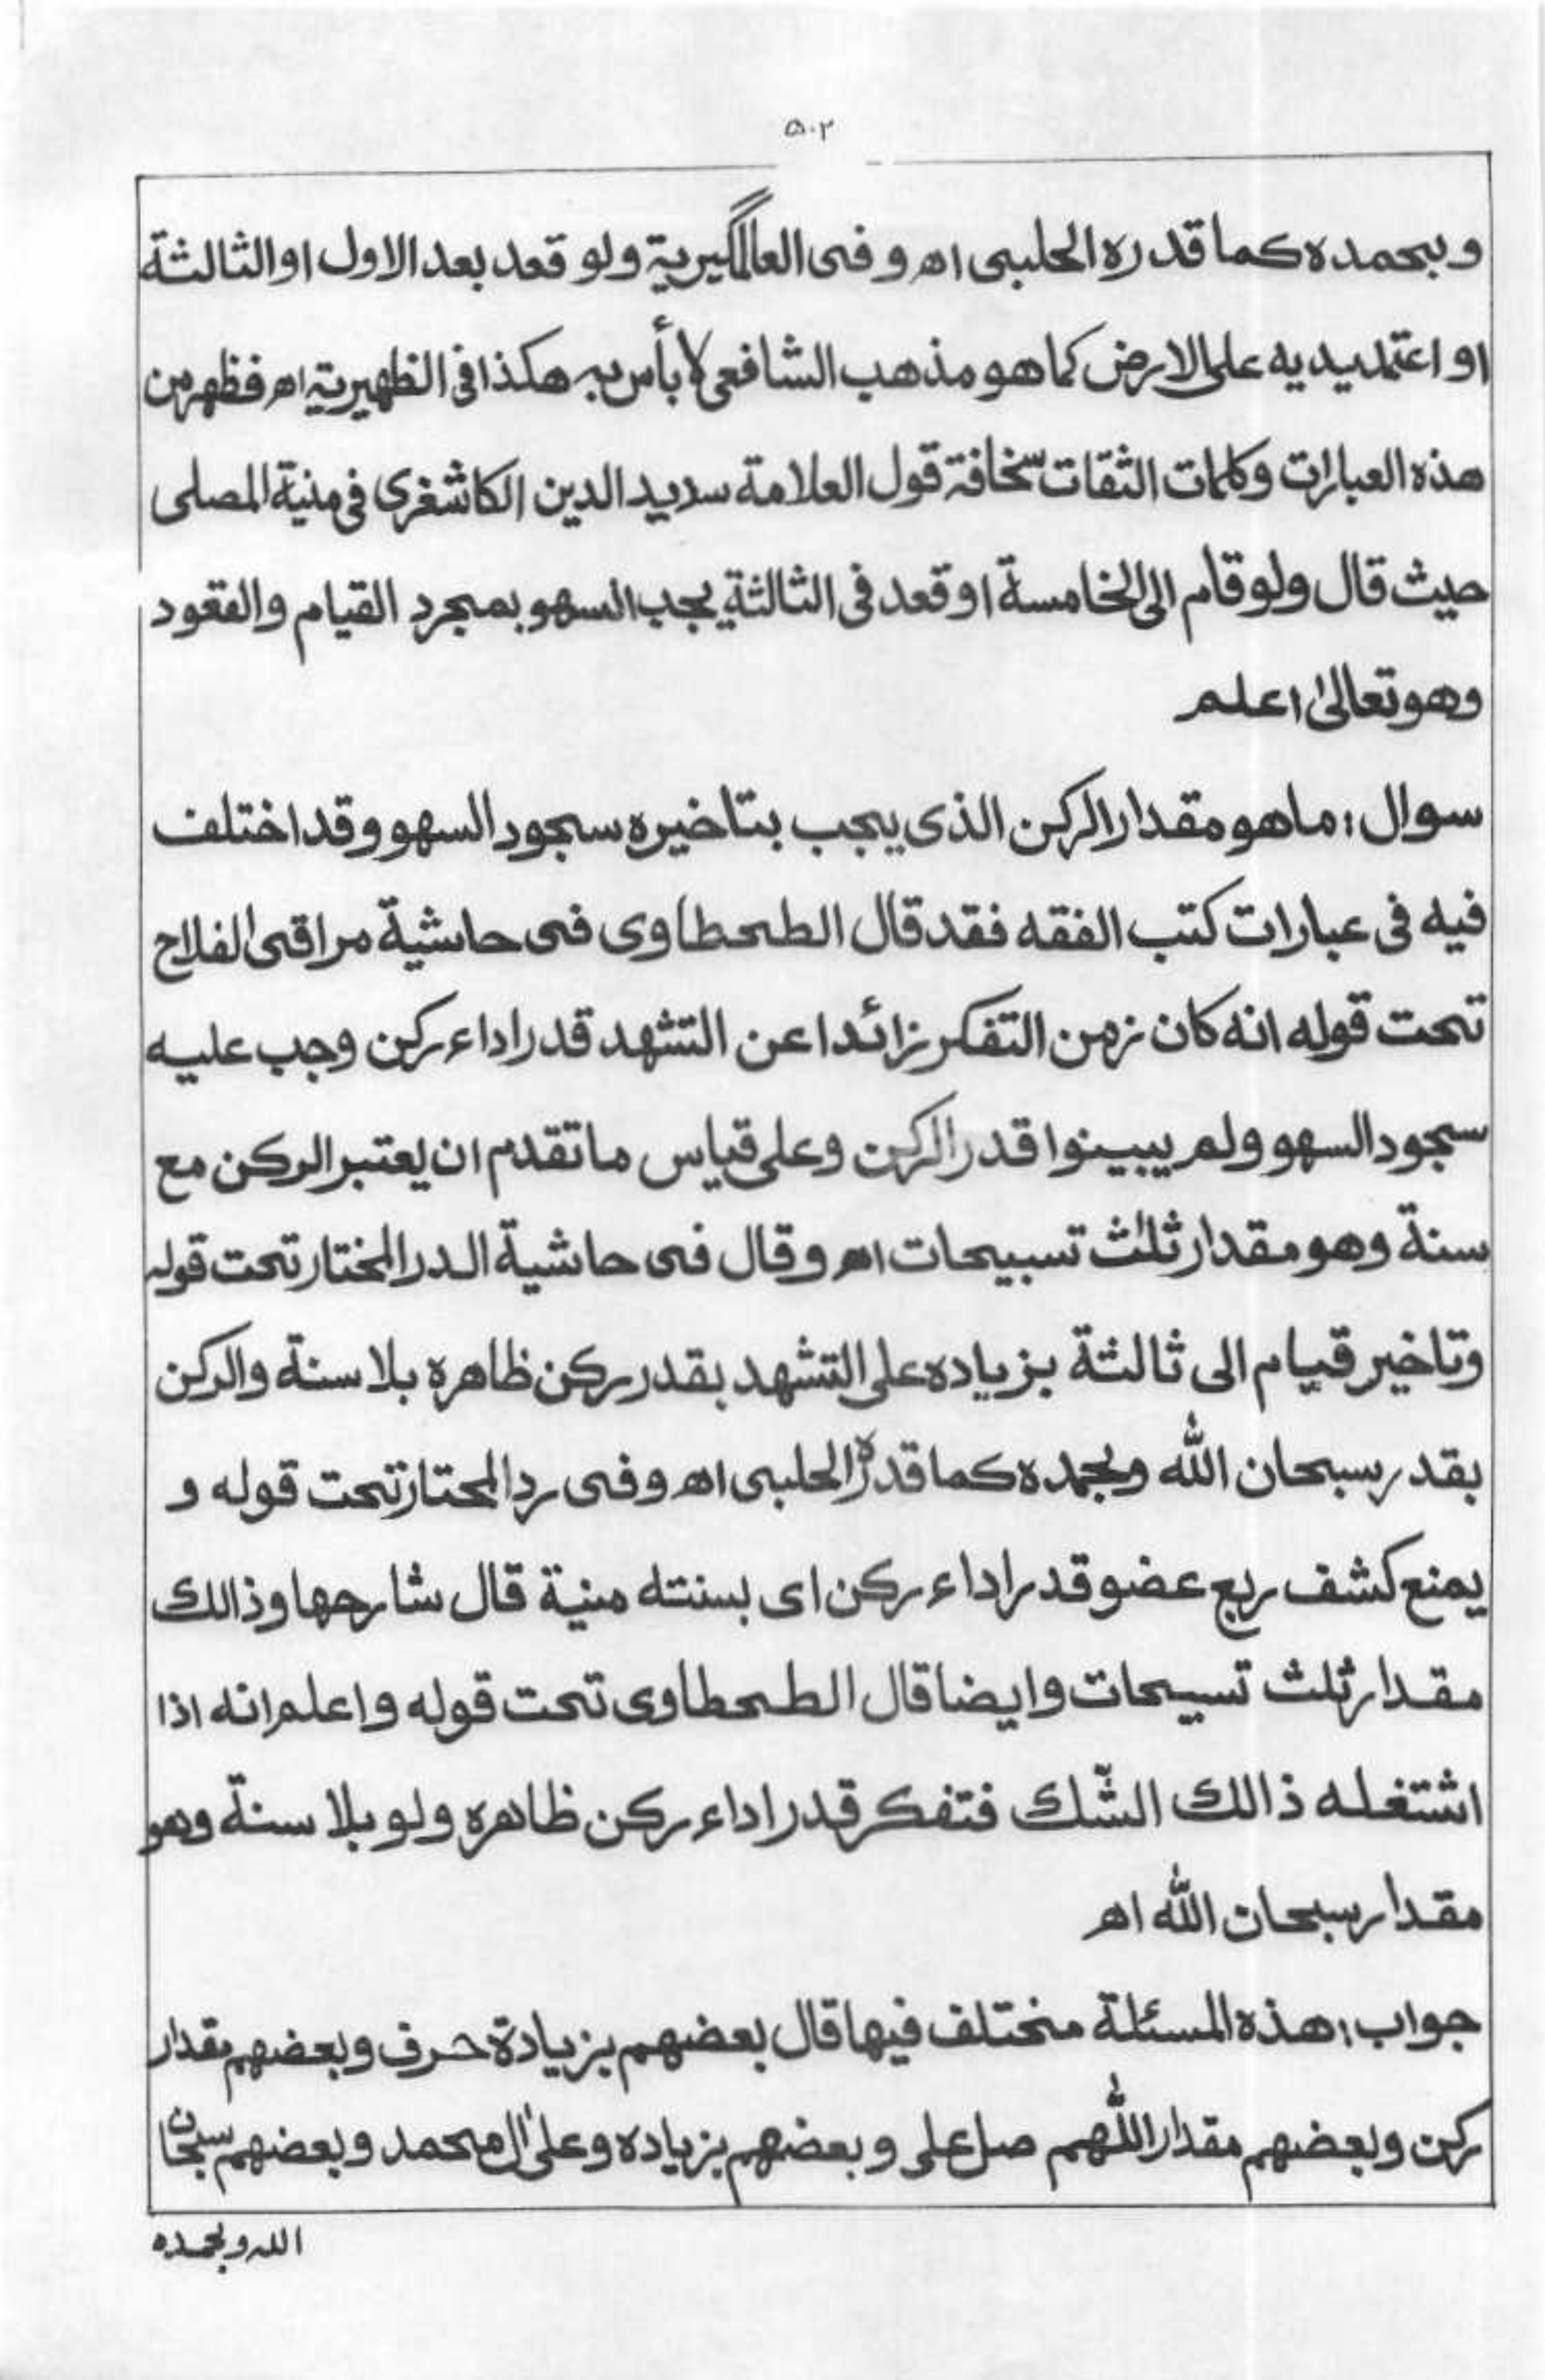 ۵۰۲
وبحمده كما قدره الحلبى اھ وفى العالمگيرية ولو قعد بعد الاول او الثالثة
او اعتمد بيديه على الارض كما هو مذهب الشافعى لا بأس به هكذا فى الظهيرية اھ فظهر من
هذه العبارات وكلمات الثقات سخافة قول العلامة سديد الدين الكاشغرى فى منية المصلى
حيث قال ولو قام الى الخامسة او قعد فى الثالثة يجب السهو بمجرد القيام والقعود
وهو تعالىٰ اعلم
سوال: ما هو مقدار الركن الذى يجب بتاخيره سجود السهو وقد اختلف
فيه فى عبارات كتب الفقه فقد قال الطحطاوى فى حاشية مراقى الفلاح
تحت قوله انه كان زمن التفكر زائدا عن التشهد قدر اداء ركن وجب عليه
سجود السهو ولم يبينوا قدر الركن وعلى قياس ما تقدم ان يعتبر الركن مع
سنة وهو مقدار ثلٰث تسبيحات اھ وقال فى حاشية الدر المختار تحت قوله
وتاخير قيام الى ثالثة بزياده على التشهد بقدر ركن ظاهره بلا سنة والركن
بقدر سبحان الله وبحمده كما قدره الحلبى اھ وفى رد المحتار تحت قوله و
يمنع كشف ربع عضو قدر اداء ركن اى بسنته منية قال شارحها وذالك
مقدار ثلث تسبيحات وايضا قال الطحطاوى تحت قوله واعلم انه اذا
اشتغله ذالك الشّك فتفكر قدر اداء ركن ظاهره ولو بلا سنة وهو
مقدار سبحان الله اھ
جواب: هذه المسئلة مختلف فيها قال بعضهم بزيادة حرف وبعضهم بقدار
ركن وبعضهم مقدار اللّٰهم صل على وبعضهم بزياده وعلىٰ ال محمد وبعضهم سبحان
الله وبحمده